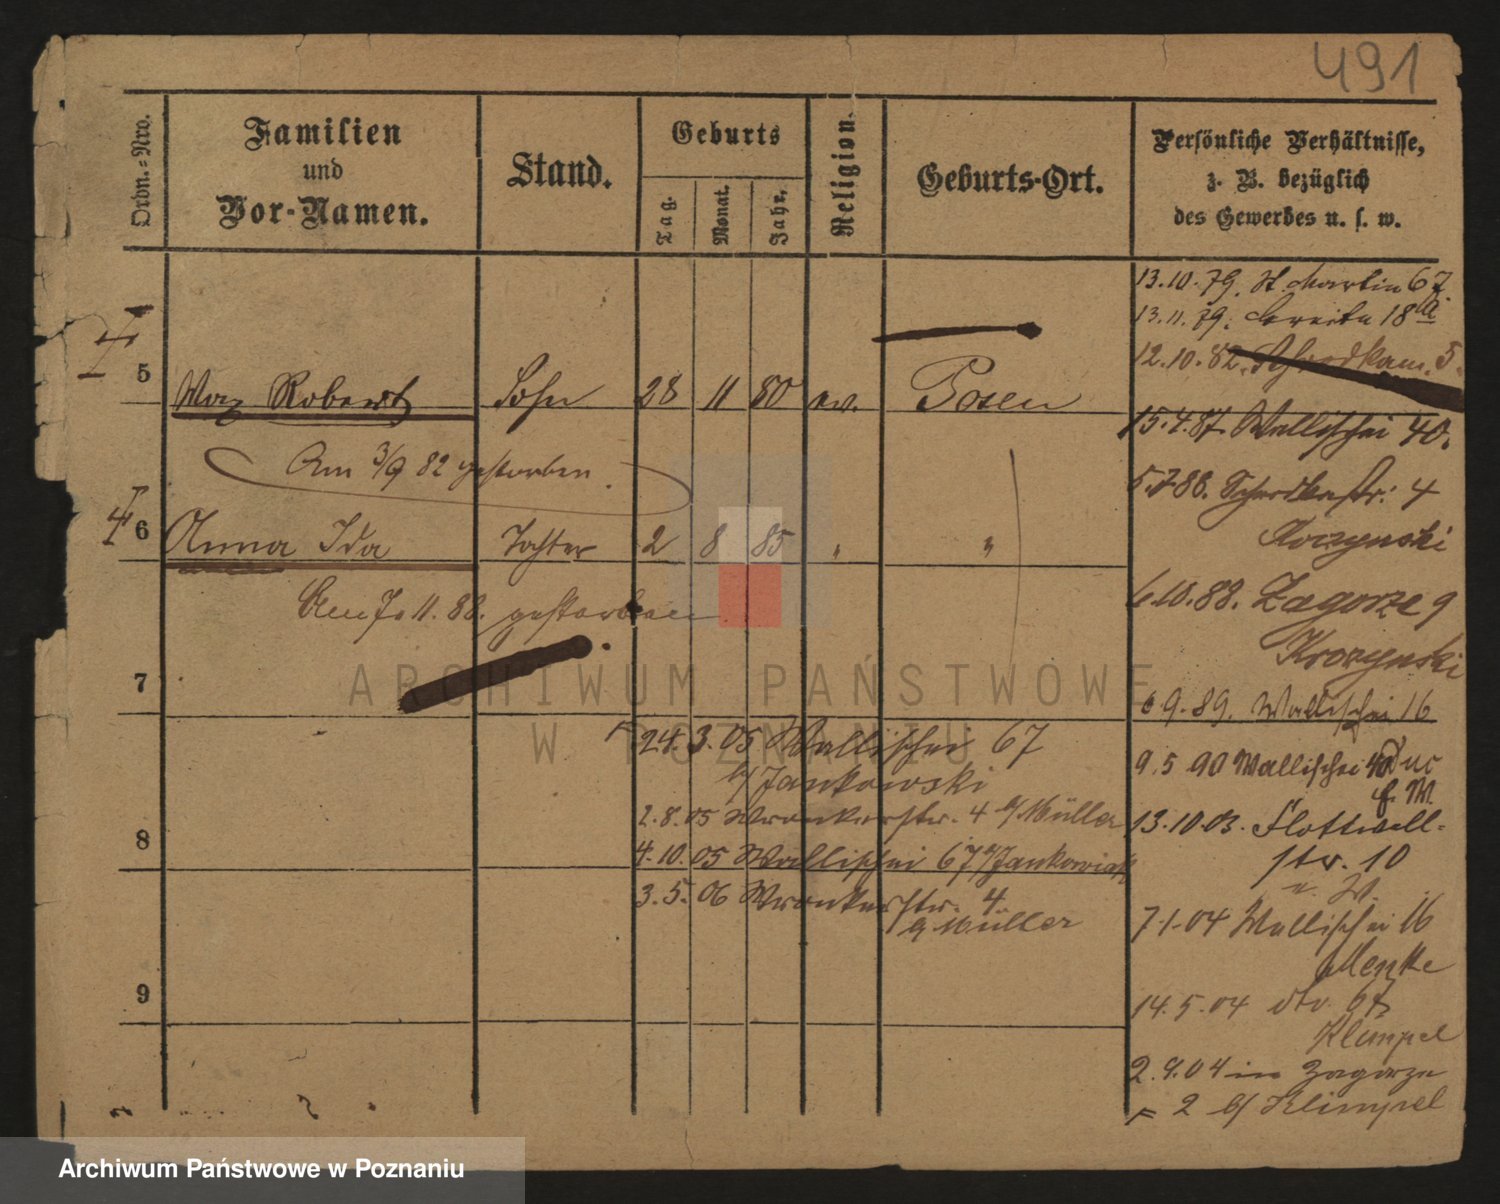 491
Ordn.-Nro.
Familien
und
Vor-Namen.
Stand.
Geburts
Tag.
Monat.
Jahr.
Religion.
Geburts-Ort.
Persönliche Verhältnisse,
z. B. bezüglich
des Gewerbes u. s. w.
13.10.79. St. Martin 67.
13.11.79. Breite 18a
12.10.82. Schrodkam. 5.
5 Max Robert Sohn 28 11 80 ev. Posen
15.4.87. Wallischei 40.
Am 3/9 82 gestorben.
5.7.88. Schrodkastr. 4
6 Anna Ida Tochter 2 8 85 " "
Korzynski
Am 7. 11. 88. gestorben
6.10.88. Zagorze 9
Krozynski
7
9.89. Wallischei 16
24.3.05 Wallischei 67
b/ Jankowski
9.5 90 Wallischei 40
f. W.
2.8.05 Wronkerstr. 4 b/ Müller
13.10.03. Flottwell-
str. 10
8
4.10.05 Wallischei 67 b/ Jankowiak
u. W.
3.5.06 Wronkerstr. 4
b/ Müller
7.1.04 Wallischei 16
Menke
9
14.5.04 dto. 67
Klimpel
2.9.04 in Zagorze
2 b/ Klimpel
ARCHIWUM PAŃSTWOWE
W POZNANIU
Archiwum Państwowe w Poznaniu